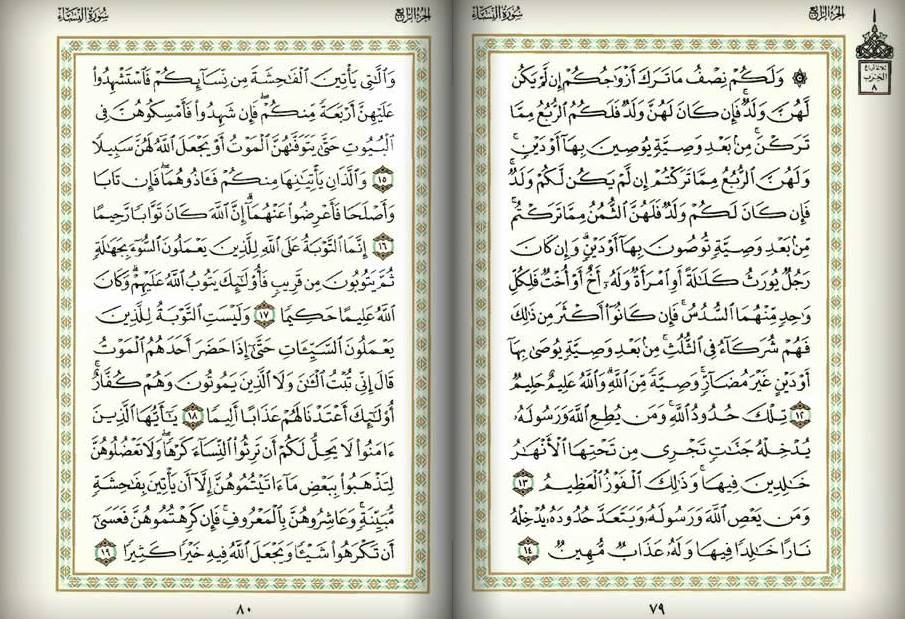 الجزء الرابع
سورة النساء
۞ وَلَكُمْ نِصْفُ مَا تَرَكَ أَزْوَٰجُكُمْ إِن لَّمْ يَكُن
لَّهُنَّ وَلَدٌ ۚ فَإِن كَانَ لَهُنَّ وَلَدٌ فَلَكُمُ ٱلرُّبُعُ مِمَّا
تَرَكْنَ ۚ مِنۢ بَعْدِ وَصِيَّةٍ يُوصِينَ بِهَآ أَوْ دَيْنٍ ۚ
وَلَهُنَّ ٱلرُّبُعُ مِمَّا تَرَكْتُمْ إِن لَّمْ يَكُن لَّكُمْ وَلَدٌ ۚ
فَإِن كَانَ لَكُمْ وَلَدٌ فَلَهُنَّ ٱلثُّمُنُ مِمَّا تَرَكْتُم ۚ
مِّنۢ بَعْدِ وَصِيَّةٍ تُوصُونَ بِهَآ أَوْ دَيْنٍ ۗ وَإِن كَانَ
رَجُلٌ يُورَثُ كَلَٰلَةً أَوِ ٱمْرَأَةٌ وَلَهُۥٓ أَخٌ أَوْ أُخْتٌ فَلِكُلِّ
وَٰحِدٍ مِّنْهُمَا ٱلسُّدُسُ ۚ فَإِن كَانُوٓا۟ أَكْثَرَ مِن ذَٰلِكَ
فَهُمْ شُرَكَآءُ فِى ٱلثُّلُثِ ۚ مِنۢ بَعْدِ وَصِيَّةٍ يُوصَىٰ بِهَآ
أَوْ دَيْنٍ غَيْرَ مُضَآرٍّ ۚ وَصِيَّةً مِّنَ ٱللَّهِ ۗ وَٱللَّهُ عَلِيمٌ حَلِيمٌ
١٢ تِلْكَ حُدُودُ ٱللَّهِ ۚ وَمَن يُطِعِ ٱللَّهَ وَرَسُولَهُۥ
يُدْخِلْهُ جَنَّٰتٍ تَجْرِى مِن تَحْتِهَا ٱلْأَنْهَٰرُ
خَٰلِدِينَ فِيهَا ۚ وَذَٰلِكَ ٱلْفَوْزُ ٱلْعَظِيمُ ١٣
وَمَن يَعْصِ ٱللَّهَ وَرَسُولَهُۥ وَيَتَعَدَّ حُدُودَهُۥ يُدْخِلْهُ
نَارًا خَٰلِدًا فِيهَا وَلَهُۥ عَذَابٌ مُّهِينٌ ١٤
٧٩
الحزب
٨
الجزء الرابع
سورة النساء
وَٱلَّٰتِى يَأْتِينَ ٱلْفَٰحِشَةَ مِن نِّسَآئِكُمْ فَٱسْتَشْهِدُوا۟
عَلَيْهِنَّ أَرْبَعَةً مِّنكُمْ ۖ فَإِن شَهِدُوا۟ فَأَمْسِكُوهُنَّ فِى
ٱلْبُيُوتِ حَتَّىٰ يَتَوَفَّىٰهُنَّ ٱلْمَوْتُ أَوْ يَجْعَلَ ٱللَّهُ لَهُنَّ سَبِيلًا
١٥ وَٱلَّذَانِ يَأْتِيَٰنِهَا مِنكُمْ فَـَٔاذُوهُمَا ۖ فَإِن تَابَا
وَأَصْلَحَا فَأَعْرِضُوا۟ عَنْهُمَآ ۗ إِنَّ ٱللَّهَ كَانَ تَوَّابًا رَّحِيمًا
١٦ إِنَّمَا ٱلتَّوْبَةُ عَلَى ٱللَّهِ لِلَّذِينَ يَعْمَلُونَ ٱلسُّوٓءَ بِجَهَٰلَةٍ
ثُمَّ يَتُوبُونَ مِن قَرِيبٍ فَأُو۟لَٰٓئِكَ يَتُوبُ ٱللَّهُ عَلَيْهِمْ ۗ وَكَانَ
ٱللَّهُ عَلِيمًا حَكِيمًا ١٧ وَلَيْسَتِ ٱلتَّوْبَةُ لِلَّذِينَ
يَعْمَلُونَ ٱلسَّيِّـَٔاتِ حَتَّىٰٓ إِذَا حَضَرَ أَحَدَهُمُ ٱلْمَوْتُ
قَالَ إِنِّى تُبْتُ ٱلْـَٰٔنَ وَلَا ٱلَّذِينَ يَمُوتُونَ وَهُمْ كُفَّارٌ ۚ
أُو۟لَٰٓئِكَ أَعْتَدْنَا لَهُمْ عَذَابًا أَلِيمًا ١٨ يَٰٓأَيُّهَا ٱلَّذِينَ
ءَامَنُوا۟ لَا يَحِلُّ لَكُمْ أَن تَرِثُوا۟ ٱلنِّسَآءَ كَرْهًا ۖ وَلَا تَعْضُلُوهُنَّ
لِتَذْهَبُوا۟ بِبَعْضِ مَآ ءَاتَيْتُمُوهُنَّ إِلَّآ أَن يَأْتِينَ بِفَٰحِشَةٍ
مُّبَيِّنَةٍ ۚ وَعَاشِرُوهُنَّ بِٱلْمَعْرُوفِ ۚ فَإِن كَرِهْتُمُوهُنَّ فَعَسَىٰٓ
أَن تَكْرَهُوا۟ شَيْـًٔا وَيَجْعَلَ ٱللَّهُ فِيهِ خَيْرًا كَثِيرًا ١٩
٨٠